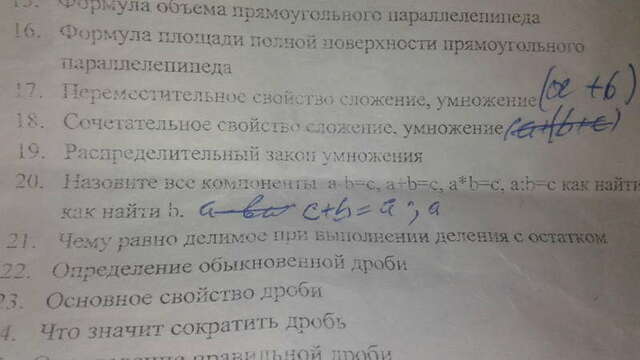 15. Формула объема прямоугольного параллелепипеда
16. Формула площади полной поверхности прямоугольного
параллелепипеда
17. Переместительное свойство сложение, умножение (a + b)
18. Сочетательное свойство сложение, умножение
19. Распределительный закон умножения
20. Назовите все компоненты a-b=c, a+b=c, a*b=c, a:b=c как найти
как найти b. c+b=a; a
21. Чему равно делимое при выполнении деления с остатком
22. Определение обыкновенной дроби
23. Основное свойство дроби
4. Что значит сократить дробь
правильной дроби